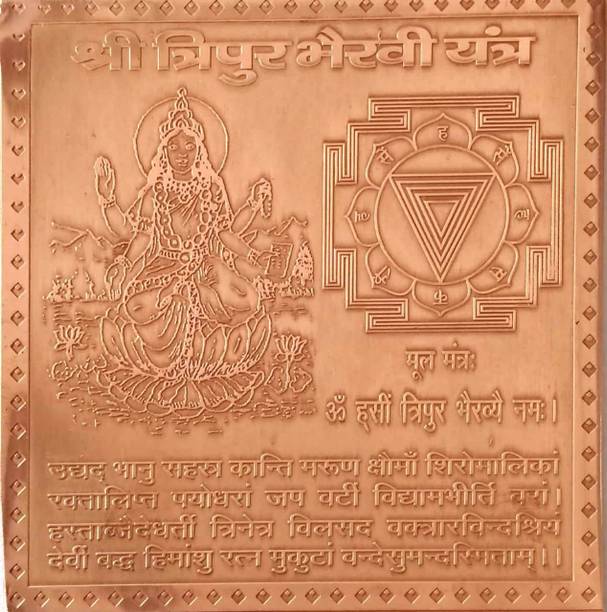 श्री त्रिपुर भैरवी यंत्र
मूल मंत्रः
ॐ हसीं त्रिपुर भैरव्यै नमः।
उद्यद् भानु सहस्त्र कान्ति मरूण क्षौमाँ शिरोमालिकां
रक्तालिप्त पयोधरां जप वटीं विद्यामभीर्ति वरां।
हस्ताब्जैदधर्ती त्रिनेत्र विलसद् वक्त्रारविन्दश्रियं
देवीं बद्ध हिमांशु रत्न मुकुटां वन्देसुमन्दस्मिताम्।।